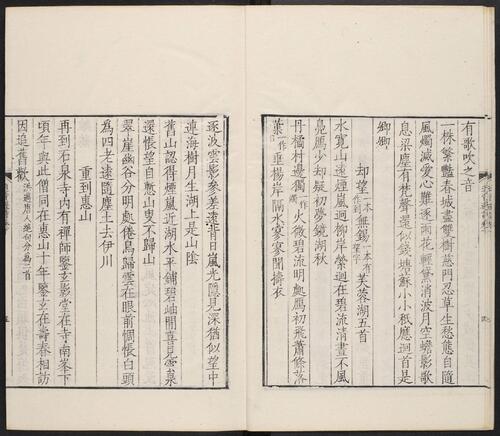 有歌吹之音
一株繁豔春城盡雙樹慈門忍草生愁態自隨
風燭滅愛心難逐雨花輕黛消波月空蟾影歌
息梁塵有梵聲還似錢塘蘇小小秖應迴首是
卿卿
却望一本作到無錫一本有望字芙蓉湖五首
水寬山遠煙嵐迥柳岸縈迴在碧流清晝不風
鳬鴈少却疑初夢鏡湖秋
丹橘村邊獨一作燭火微碧流明處鴈初飛蕭條落
葉一作垂楊岸隔水寥寥聞擣衣
逐波雲影參差遠背日嵐光隱見深猶似望中
連海樹月生湖上是山陰
舊山認得煙嵐近湖水平鋪碧岫間喜見雲泉
還悵望自慙山叟不歸山
翠崖幽谷分明處倦鳥歸雲在眼前惆悵白頭
為四老遠隨塵土去伊川
重到惠山
再到石泉寺內有禪師鑒玄影堂在寺南峯下
頃年與此僧同在惠山十年鑒玄在壽春相訪
因追舊歎洪邁選唐人絶句分為二首